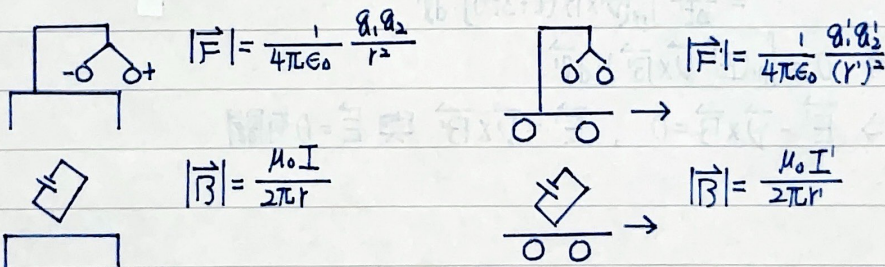 - + |F⃗| = 1/(4πϵ₀) q₁q₂/r² |F⃗'| = 1/(4πϵ₀) q₁'q₂'/(r')²
|B⃗| = μ₀I/(2πr) |B⃗| = μ₀I'/(2πr')